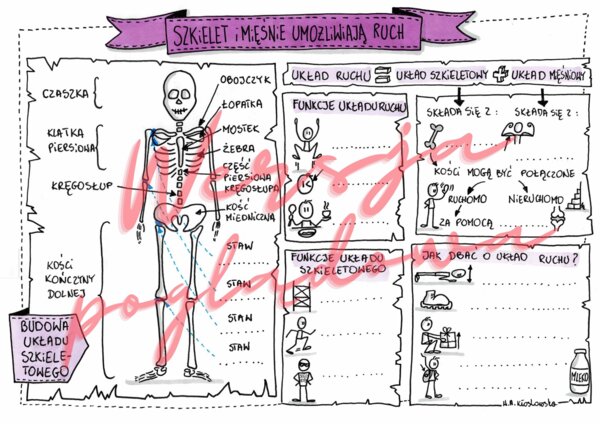 SZKIELET i MIĘSNIE UMOŻLIWIAJĄ RUCH
CZASZKA
KLATKA
PIERSIOWA
KRĘGOSŁUP
KOŚCI
KOŃCZYNY
DOLNEJ
BUDOWA
UKŁADU
SZKIELE-
TOWEGO
OBOJCZYK
ŁOPATKA
MOSTEK
ŻEBRA
CZĘŚĆ
PIERSIOWA
KRĘGOSŁUPA
KOŚĆ
MIEDNICZNA
STAW
STAW
STAW
STAW
UKŁAD RUCHU = UKŁAD SZKIELETOWY + UKŁAD MIĘŚNIOWY
FUNKCJE UKŁADU RUCHU
SKŁADA SIĘ Z :
SKŁADA SIĘ Z :
KOŚCI MOGĄ BYĆ POŁĄCZONE
RUCHOMO
NIERUCHOMO
ZA POMOCĄ
FUNKCJE UKŁADU
SZKIELETOWEGO
JAK DBAĆ O UKŁAD RUCHU?
MLEKO
Wersja
poglądowa